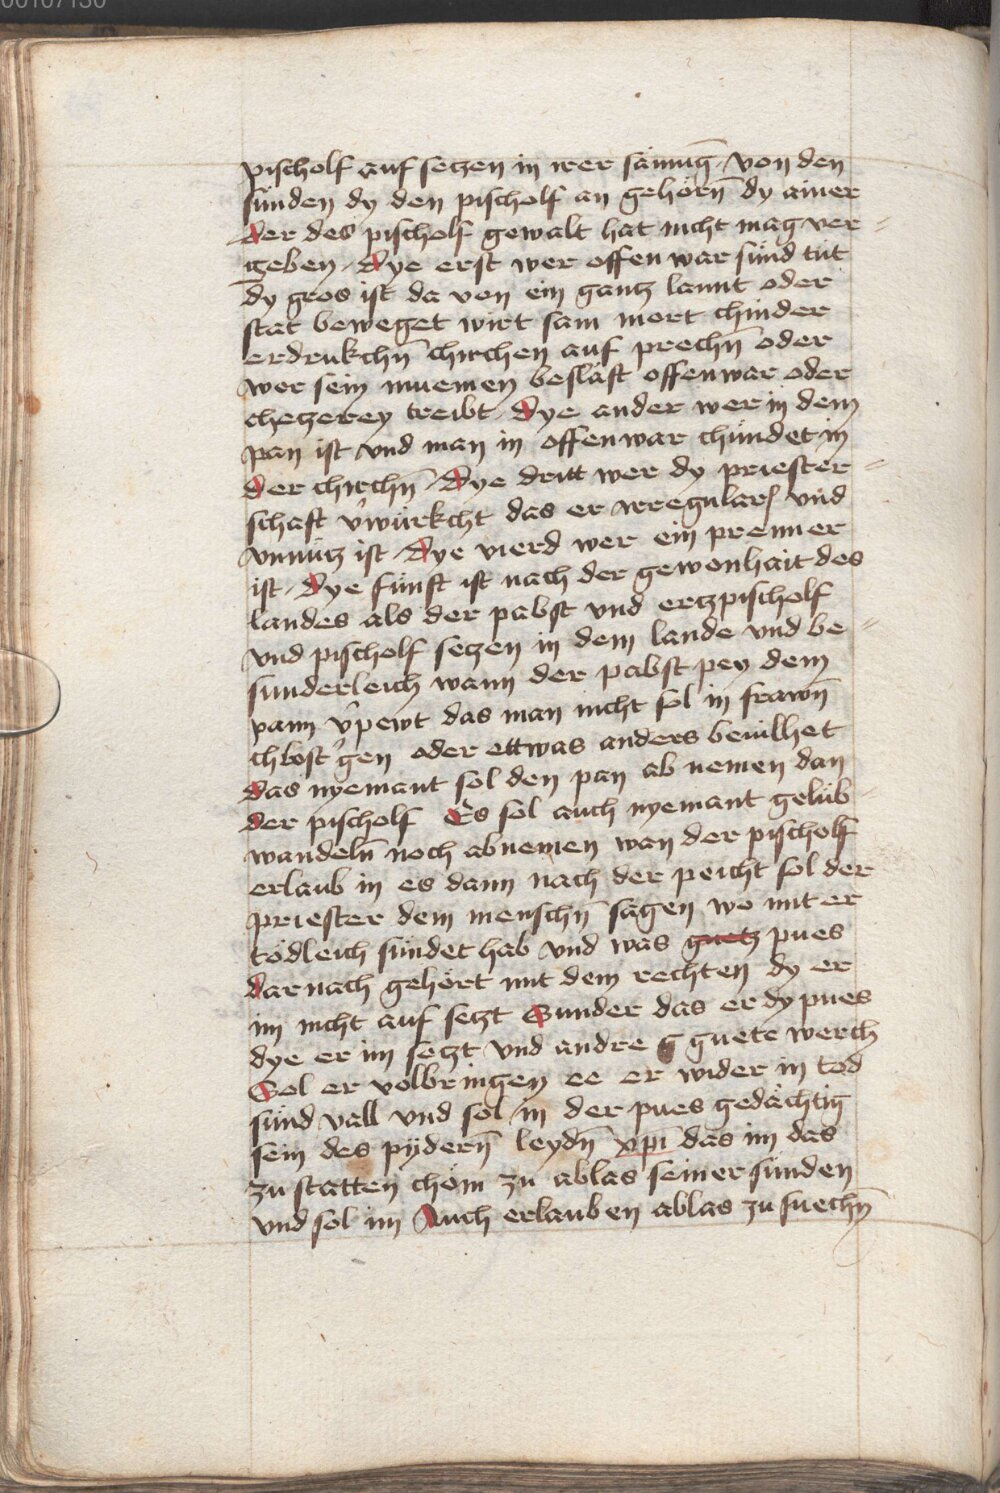 00107130
pischolf auf seczen in irer sämūg von den
sünden dy den pischolf an gehörn̄ dy ainer
der des pischolf gewalt hat nicht mag ver=
geben Dye erst wer offenwar sünd tut
dy gros ist da von ein gantz lannt oder
stat beweget wirt sam mort chinder
erdrukchn̄ chirchen auf prechn̄ oder
wer sein muemen beslaft offenwar oder
checzerey treibt Dye ander wer in dem
pan ist vnd man in offenwar chündet in
der chirchn̄ Dye dritt wer dy priester=
schaft v̓würkcht das er irregular vnd
vnnütz ist Dye vierd wer ein prenner
ist Dye fünft ist nach der gewonhait des
landes als der pabst vnd erczpischolf
vnd pischolf seczen in dem lande vnd be=
sunderleich wann der pabst pey dem
pann v̓pewt das man nicht sol in frawn̄
chlost̓ gen oder ettwas anders beuilhet
das nyemant sol den pan ab nemen dan
der pischolf Es sol auch nyemant gelüb
wandeln̄ noch abnemen wan der pischolf
erlaub in es dann nach der peicht sol der
priester dem menschn̄ sagen wo mit er
tödleich sündet hab vnd was guetz pues
dar nach gehört mit dem rechten dy er
im nicht auf seczt Sunder das er dy pues
dye er im seczt vnd andre g guete werch
Sol er volbringen ee er wider in tod
sünd vall vnd sol in der pues gedächtig
sein des pÿdern̄ leydn̄ xp̄i das im das
zu statten chöm zu ablas seiner sünden
vnd sol im Auch erlauben ablas zu suechn̄